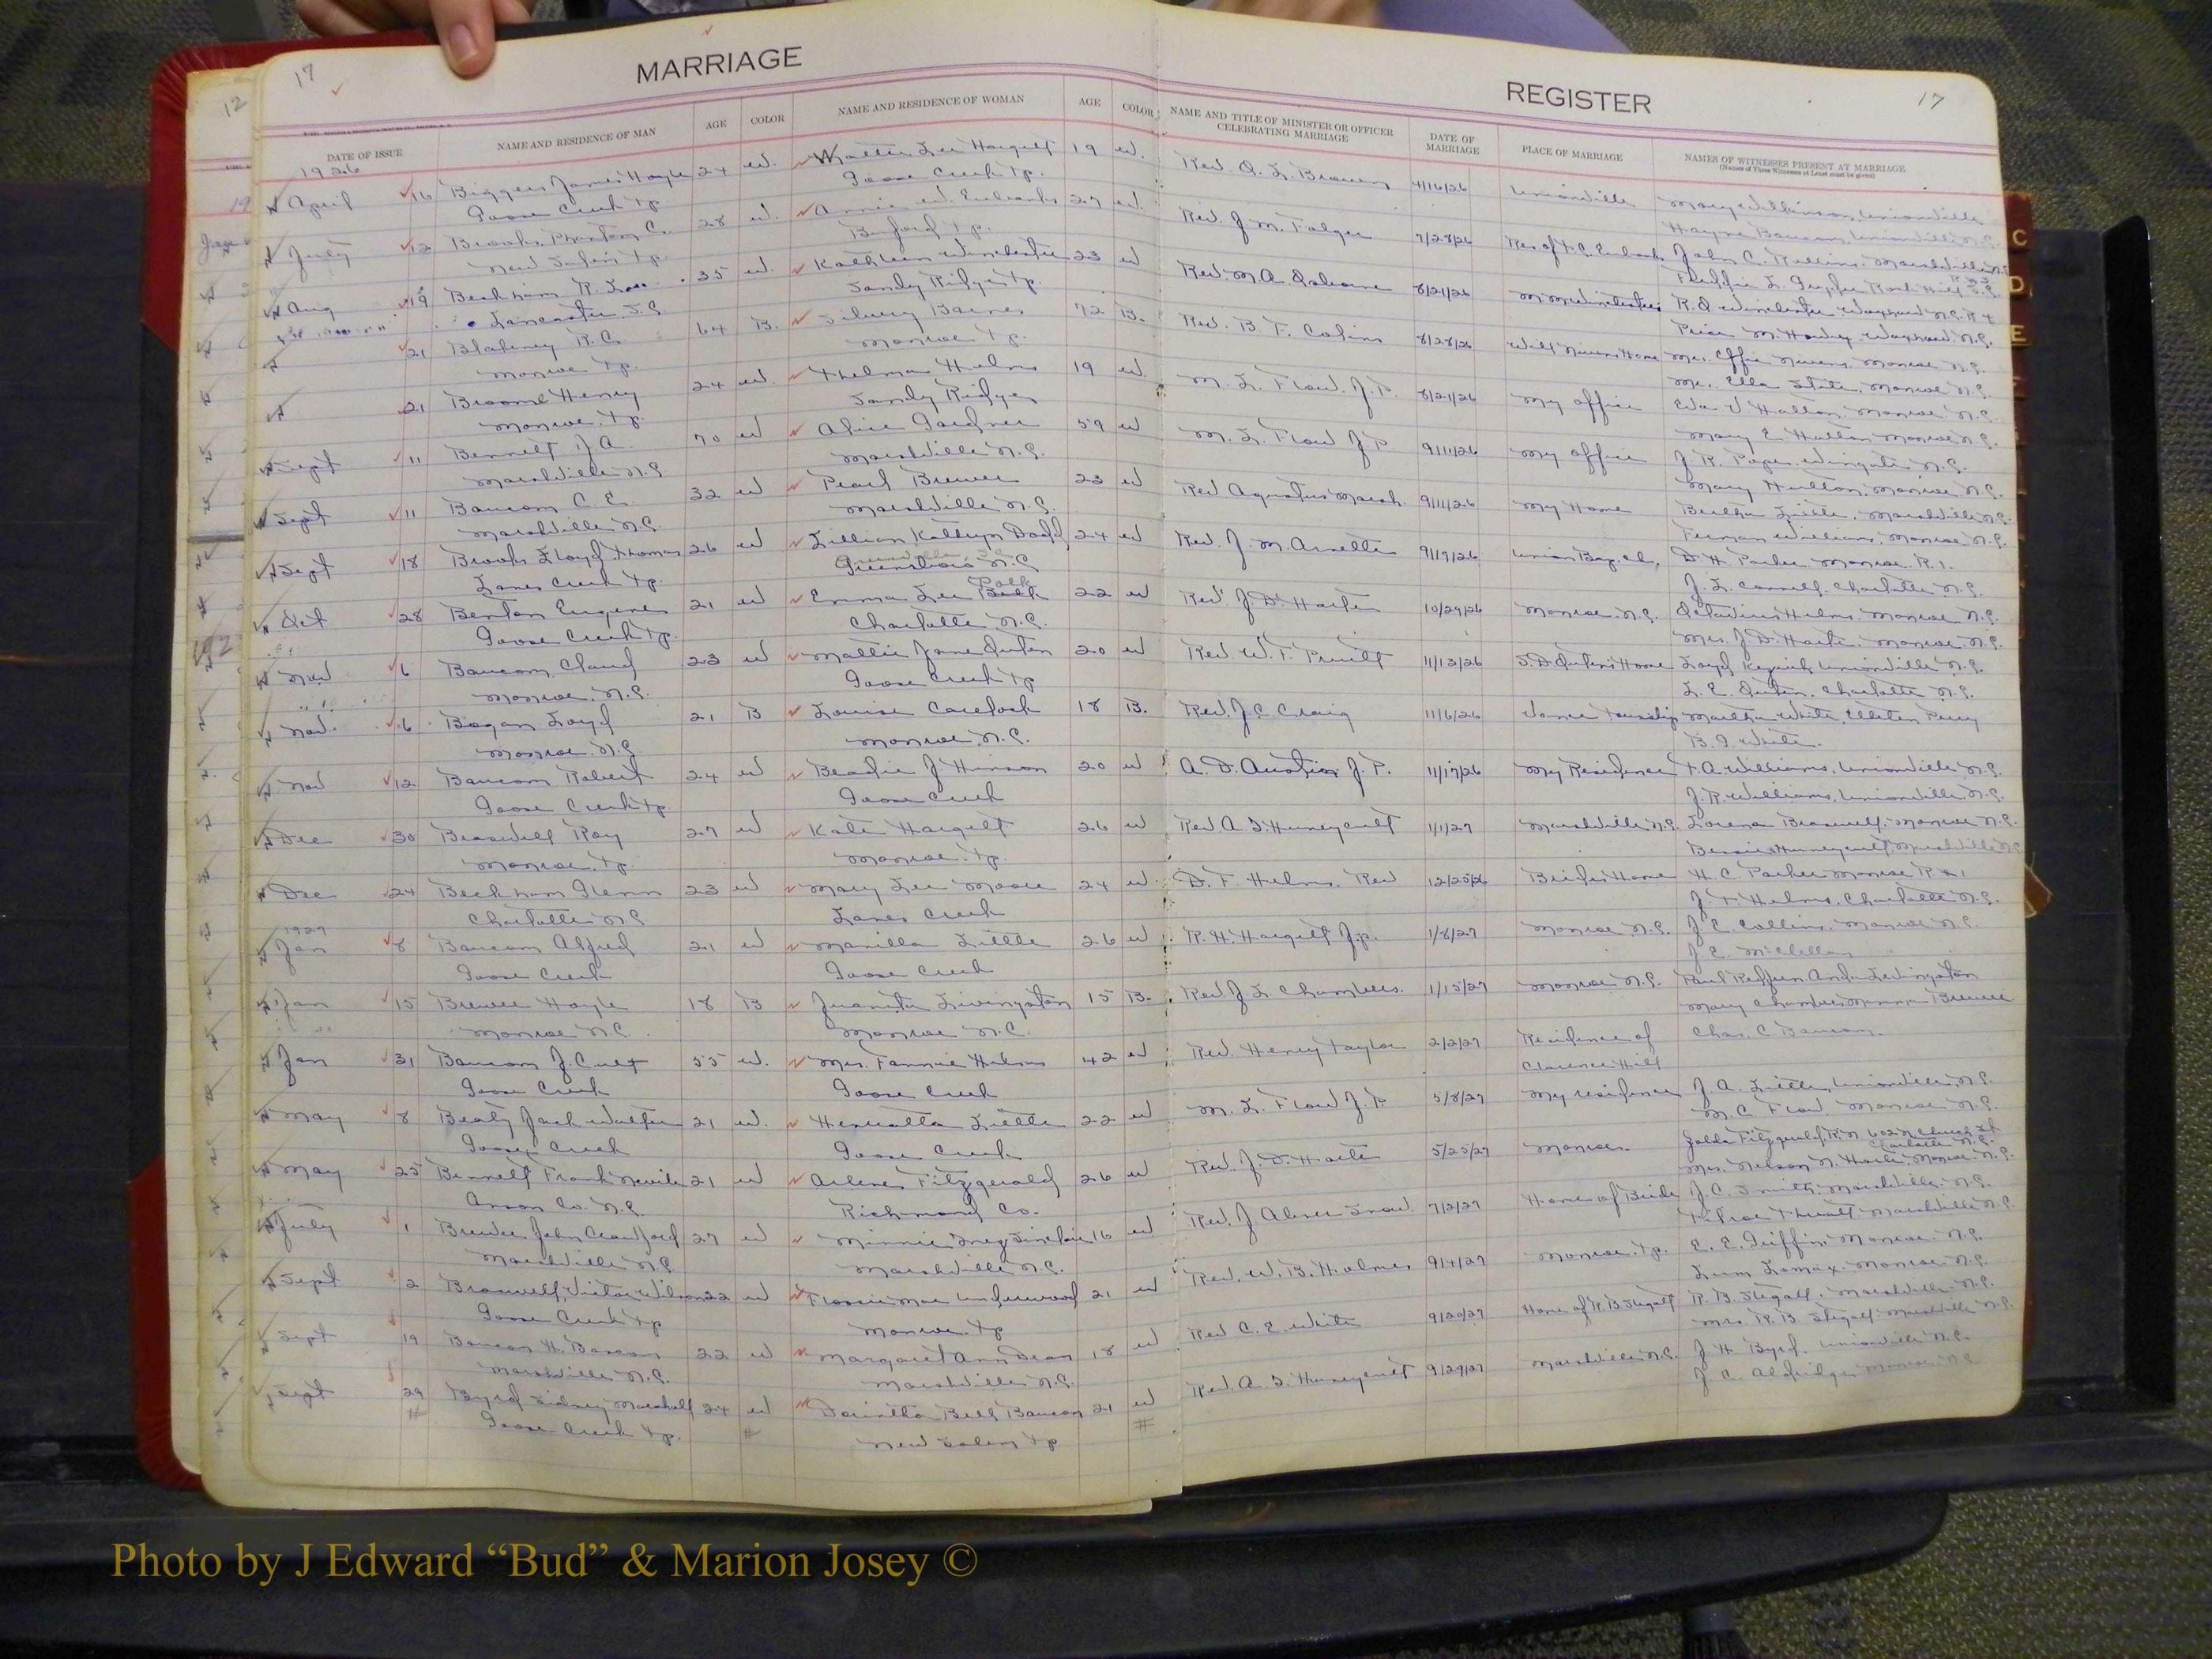 17
MARRIAGE
REGISTER
17
12
DATE OF ISSUE
NAME AND RESIDENCE OF MAN
AGE
COLOR
NAME AND RESIDENCE OF WOMAN
AGE
COLOR
NAME AND TITLE OF MINISTER OR OFFICER CELEBRATING MARRIAGE
DATE OF MARRIAGE
PLACE OF MARRIAGE
NAMES OF WITNESSES PRESENT AT MARRIAGE
(Names of Three Witnesses at Least must be given)
1926
April 16 Biggers James Hoyle 24 W. Lee Hargett 19 W. Rev. Q. L. Brown 4/16/26 Unionville Mary Wilkinson, Unionville
Goose Creek Tp. Goose Creek Tp. Wayne Baucom, Unionville N.C.
July 12 Brooks C. 28 W. Annie W. Eubanks 27 W. Rev. J. M. Folger 7/28/26 Res of T. C. Eubanks John C. Marshville N.C.
New Salem Tp. Buford Tp. Rock Hill S.C.
Aug 19 Beckham R. 35 W. Kathleen Winchester 23 W Rev. M. A. Osborne 8/21/26 M M Winchester R. Q Winchester Waxhaw N.C. R 4
Lancaster S.C Sandy Ridge Tp. Price M. Waxhaw N.C.
21 Blakeney R. C. 64 B. Barnes 72 B. Rev. B. F. 8/28/26 Will Nivens Home Mrs. Effie Nivens, Monroe N.C.
Monroe Tp. Monroe Tp. Mrs. Ella Monroe N.C.
21 Broome Henry 24 W. Thelma Helms 19 W. M. L. Flow J.P. 8/21/26 My office Eva V. Monroe N.C.
Monroe Tp. Sandy Ridge Mary E. Monroe N.C.
Sept 11 Bennett J A. 70 W Alice Gardner 59 W M. L. Flow J P 9/11/26 My office J. R. Wingate N.C.
Marshville N.C Marshville N.C. Mary Monroe N.C.
Sept 11 Baucom C. E. 32 W Pearl Brewer 23 W Rev 9/11/26 My Home Bertha Little, Marshville N.C.
Marshville N.C. Marshville N.C. Williams, Monroe N.C.
Sept 18 Brooks Lloyd Thomas 26 W Lillian Kathryn 24 W Rev. J. M. Arnette 9/19/26 Union Bap. Ch, D. H. Parker Monroe R. 1.
Lanes Creek Tp. Greensboro N.C J. L. Charlotte N.C.
Oct 28 Benton Eugene 21 W Emma Lee Polk 22 W Rev. J. D. 10/29/26 Monroe N.C. Helms Monroe N.C.
Goose Creek Tp. Charlotte N.C. Mrs. J. D. Monroe N.C.
Nov 6 Baucom, Claud 23 W Mattie Jane 20 W Rev. W. F. Pruitt 11/13/26 Home Loyd Unionville N.C.
Monroe, N.C. Goose Creek Tp L. E. Charlotte N.C.
Nov. 6 Bogan Loyd 21 B Louise 18 B. Rev. J. C. Craig 11/6/26 Township Martha White, Perry
Monroe N.C Monroe, N.C. White.
Nov 12 Baucom Robert 24 W J. Hinson 20 W A. D. Austin J. P. 11/17/26 My Residence T. A. Williams, Unionville N.C.
Goose Creek Tp. Goose Creek J. R. Williams, Unionville N.C.
Dec 30 Braswell Roy 27 W Kate Hargett 26 W Rev A S. Huneycutt 1/1/27 Marshville N.C. Lorena Braswell, Monroe N.C
Monroe, Tp. Monroe, Tp. Bessie Huneycutt, Marshville N.C
Dec 24 Beckham Glenn 23 W Mary Lee Moore 24 W D. F. Helms, Rev 12/25/26 Brides Home H. C Parker Monroe R # 1
Charlotte N.C Lanes Creek J. T. Helms, Charlotte N.C.
1927
Jan 8 Baucom Alfred 21 W Manilla Little 26 W R. H. Hargett J.P. 1/8/27 Monroe N.C. J. E. Collins, Monroe N.C.
Goose Creek Goose Creek J E. McClellan
Jan 15 Brewer Hoyle 18 B Juanita Livingston 15 B. Rev. J. L. Chambers. 1/15/27 Monroe N.C. Paul Redfern Livingston
Monroe N.C. Monroe N.C. Mary Chambers Brewer
Jan 31 Baucom J. 55 W. Mrs. Fannie Helms 42 W Rev. Henry Taylor 2/2/27 Residence of Chas. C. Baucom.
Goose Creek Goose Creek Clarence Hill
May 8 Beaty Jack Walter 21 W. Henretta Little 22 W M. L. Flow J.P. 5/8/27 My residence J. A. Little, Unionville, N.C.
Goose Creek Goose Creek M. C. Flow Monroe N.C.
May 25 Bennett Frank 21 W Arlene Fitzgerald 26 W Rev. J. D. 5/25/27 Monroe. Zelda Fitzgerald, R.N. 602 N Church St Charlotte N.C.
Anson Co. N.C. Richmond Co. Mrs. Nelson N. Monroe N.C.
July 1 Brewer John Crawford 27 W Minnie Sinclair 16 W Rev. J. Abner 7/2/27 Home of Bride J. C. Smith, Marshville N.C.
Marshville N.C Marshville N.C. Marshville N.C.
Sept 2 Braswell, Victor Wilson 22 W Flossie Mae Underwood 21 W Rev. W. B. Holmes 9/4/27 Monroe, Tp. E. E. Griffin, Monroe N.C.
Goose Creek Tp Monroe Tp Lomax Monroe N.C.
Sept 19 H. 22 W Margaret Ann Dean 18 W Rev C. E. White 9/20/27 Home of R. B. Stegall R. B. Stegall, Marshville N.C.
Marshville N.C. Marshville N.C. Mrs. R. B. Stegall Marshville N.C.
Sept 29 Byrd Sidney Marshall 24 W Belle Baucom 21 W Rev. A. S. Huneycutt 9/29/27 Marshville N.C. J. H. Byrd, Unionville N.C.
Goose Creek Tp. New Salem Tp J. C. Aldridge Monroe N C
C
D
E
Photo by J Edward “Bud” & Marion Josey ©